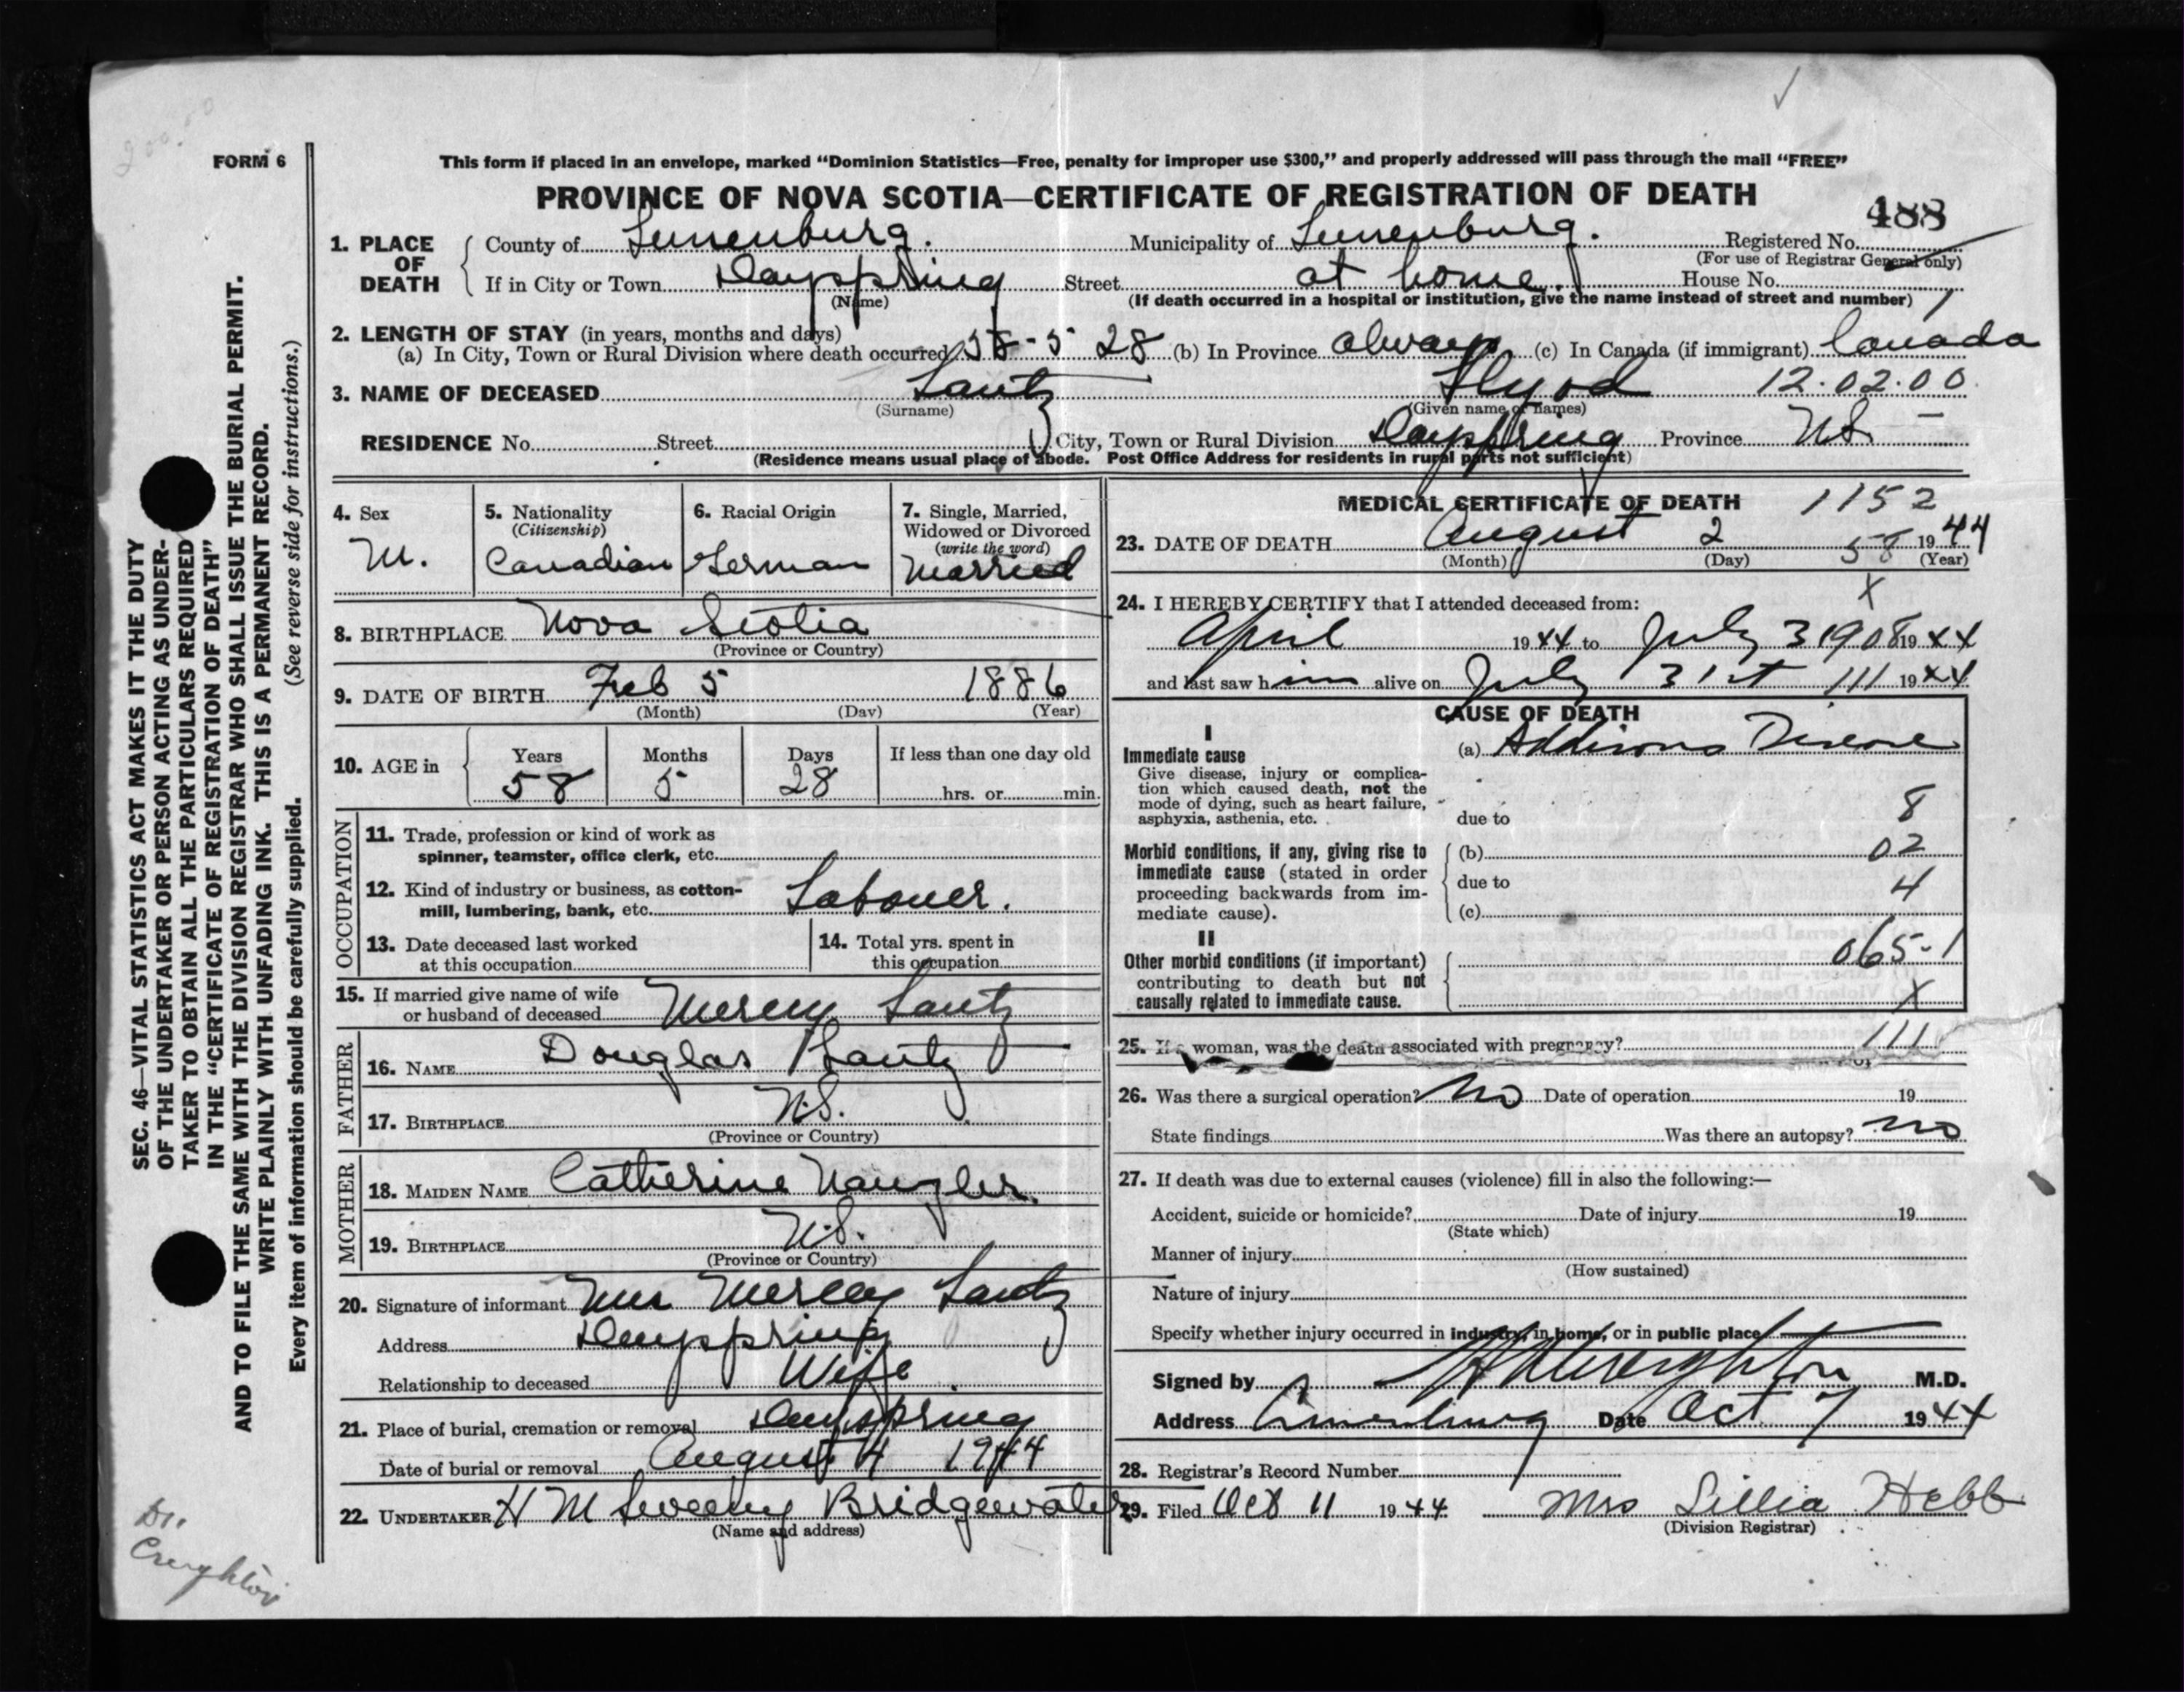 200.00
✓
FORM 6
This form if placed in an envelope, marked "Dominion Statistics—Free, penalty for improper use $300," and properly addressed will pass through the mail "FREE"
PROVINCE OF NOVA SCOTIA—CERTIFICATE OF REGISTRATION OF DEATH
488
1. PLACE OF DEATH County of Lunenburg. Municipality of Lunenburg. Registered No.
(For use of Registrar General only)
If in City or Town Dayspring Street at home. House No.
(Name) (If death occurred in a hospital or institution, give the name instead of street and number)
2. LENGTH OF STAY (in years, months and days)
(a) In City, Town or Rural Division where death occurred 58-5 28 (b) In Province always (c) In Canada (if immigrant) Canada
3. NAME OF DECEASED Lantz Flyod 12.02.00
(Surname) (Given name or names)
RESIDENCE No. Street City, Town or Rural Division Dayspring Province N.S. –
(Residence means usual place of abode. Post Office Address for residents in rural parts not sufficient)
4. Sex M.
5. Nationality (Citizenship) Canadian
6. Racial Origin German
7. Single, Married, Widowed or Divorced (write the word) Married
8. BIRTHPLACE Nova Scotia
(Province or Country)
9. DATE OF BIRTH Feb 5 1886
(Month) (Day) (Year)
10. AGE in Years 58 Months 5 Days 28 If less than one day old
hrs. or min.
OCCUPATION
11. Trade, profession or kind of work as
spinner, teamster, office clerk, etc.
12. Kind of industry or business, as cotton-
mill, lumbering, bank, etc. Labouer.
13. Date deceased last worked
at this occupation
14. Total yrs. spent in
this occupation
15. If married give name of wife
or husband of deceased Mercy Lantz
FATHER
16. NAME Douglas Lantz
17. BIRTHPLACE N.S.
(Province or Country)
MOTHER
18. MAIDEN NAME Catherine Naugler.
19. BIRTHPLACE N.S.
(Province or Country)
20. Signature of informant Mrs Mercy Lantz
Address Dayspring
Relationship to deceased Wife
21. Place of burial, cremation or removal Dayspring
Date of burial or removal August 4 1944
22. UNDERTAKER H M Sweeny Bridgewater
(Name and address)
MEDICAL CERTIFICATE OF DEATH 1152
23. DATE OF DEATH August 2 58 1944
(Month) (Day) (Year)
X
24. I HEREBY CERTIFY that I attended deceased from:
April 1944 to July 31 908 1944
and last saw him alive on July 31st 111 1944
CAUSE OF DEATH
I
Immediate cause (a) Addisons Disease
Give disease, injury or complica-
tion which caused death, not the
mode of dying, such as heart failure,
asphyxia, asthenia, etc.
due to 8
Morbid conditions, if any, giving rise to
immediate cause (stated in order
proceeding backwards from im-
mediate cause).
(b) 02
due to 4
(c)
II
Other morbid conditions (if important)
contributing to death but not
causally related to immediate cause.
065-1
X
25. If a woman, was the death associated with pregnancy? 111
26. Was there a surgical operation? No Date of operation 19
State findings Was there an autopsy? no
27. If death was due to external causes (violence) fill in also the following:—
Accident, suicide or homicide? Date of injury 19
(State which)
Manner of injury
(How sustained)
Nature of injury
Specify whether injury occurred in industry, in home, or in public place
Signed by Creighton M.D.
Address Lunenburg Date Oct 7 1944
28. Registrar's Record Number
29. Filed Oct 11 1944 Mrs Lillia Hebb
(Division Registrar)
SEC. 46—VITAL STATISTICS ACT MAKES IT THE DUTY
OF THE UNDERTAKER OR PERSON ACTING AS UNDER-
TAKER TO OBTAIN ALL THE PARTICULARS REQUIRED
IN THE "CERTIFICATE OF REGISTRATION OF DEATH"
AND TO FILE THE SAME WITH THE DIVISION REGISTRAR WHO SHALL ISSUE THE BURIAL PERMIT.
WRITE PLAINLY WITH UNFADING INK. THIS IS A PERMANENT RECORD.
Every item of information should be carefully supplied. (See reverse side for instructions.)
Dr.
Creighton